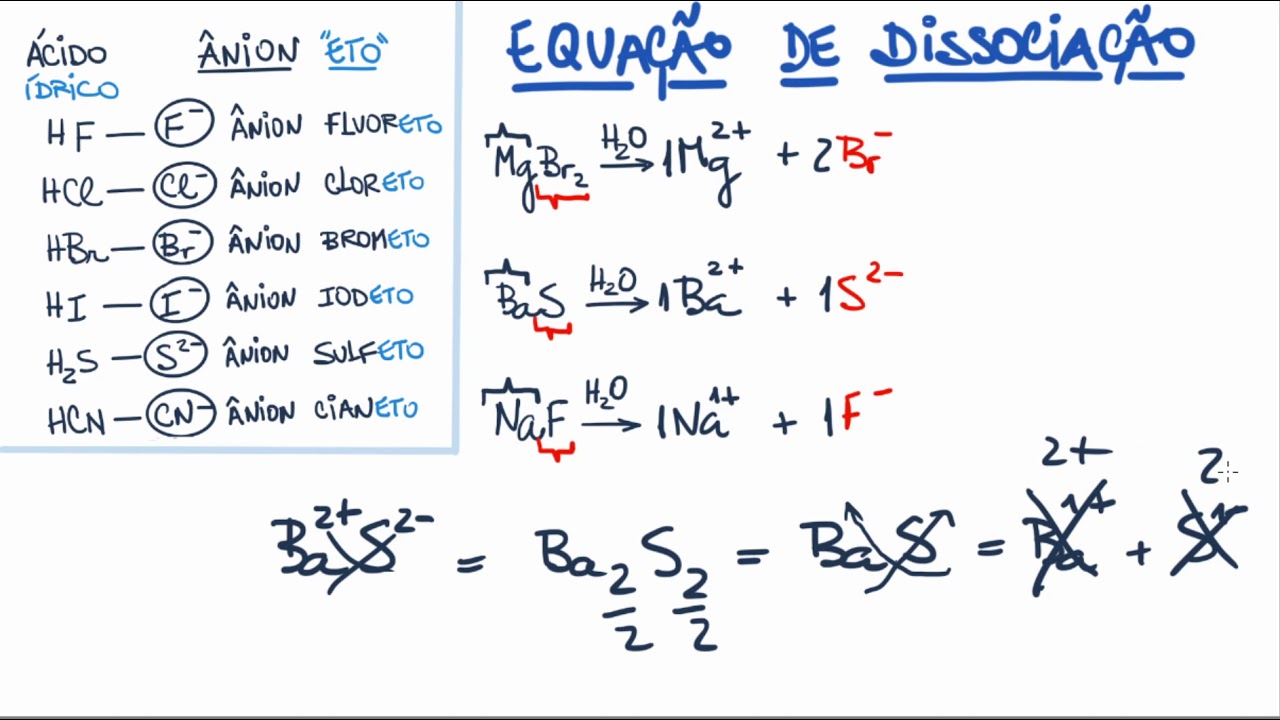 ÁCIDO ÂNION "ETO"
ÍDRICO
HF — F⁻ ÂNION FLUORETO
HCl — Cl⁻ ÂNION CLORETO
HBr — Br⁻ ÂNION BROMETO
HI — I⁻ ÂNION IODETO
H₂S — S²⁻ ÂNION SULFETO
HCN — CN⁻ ÂNION CIANETO
EQUAÇÃO DE DISSOCIAÇÃO
MgBr₂ H₂O→ 1Mg²⁺ + 2Br⁻
BaS H₂O→ 1Ba²⁺ + 1S²⁻
NaF H₂O→ 1Na¹⁺ + 1F⁻
2+ 2
Ba²⁺S²⁻ = Ba₂S₂ = BaS = Ba¹⁺ + S¹⁻
2 2